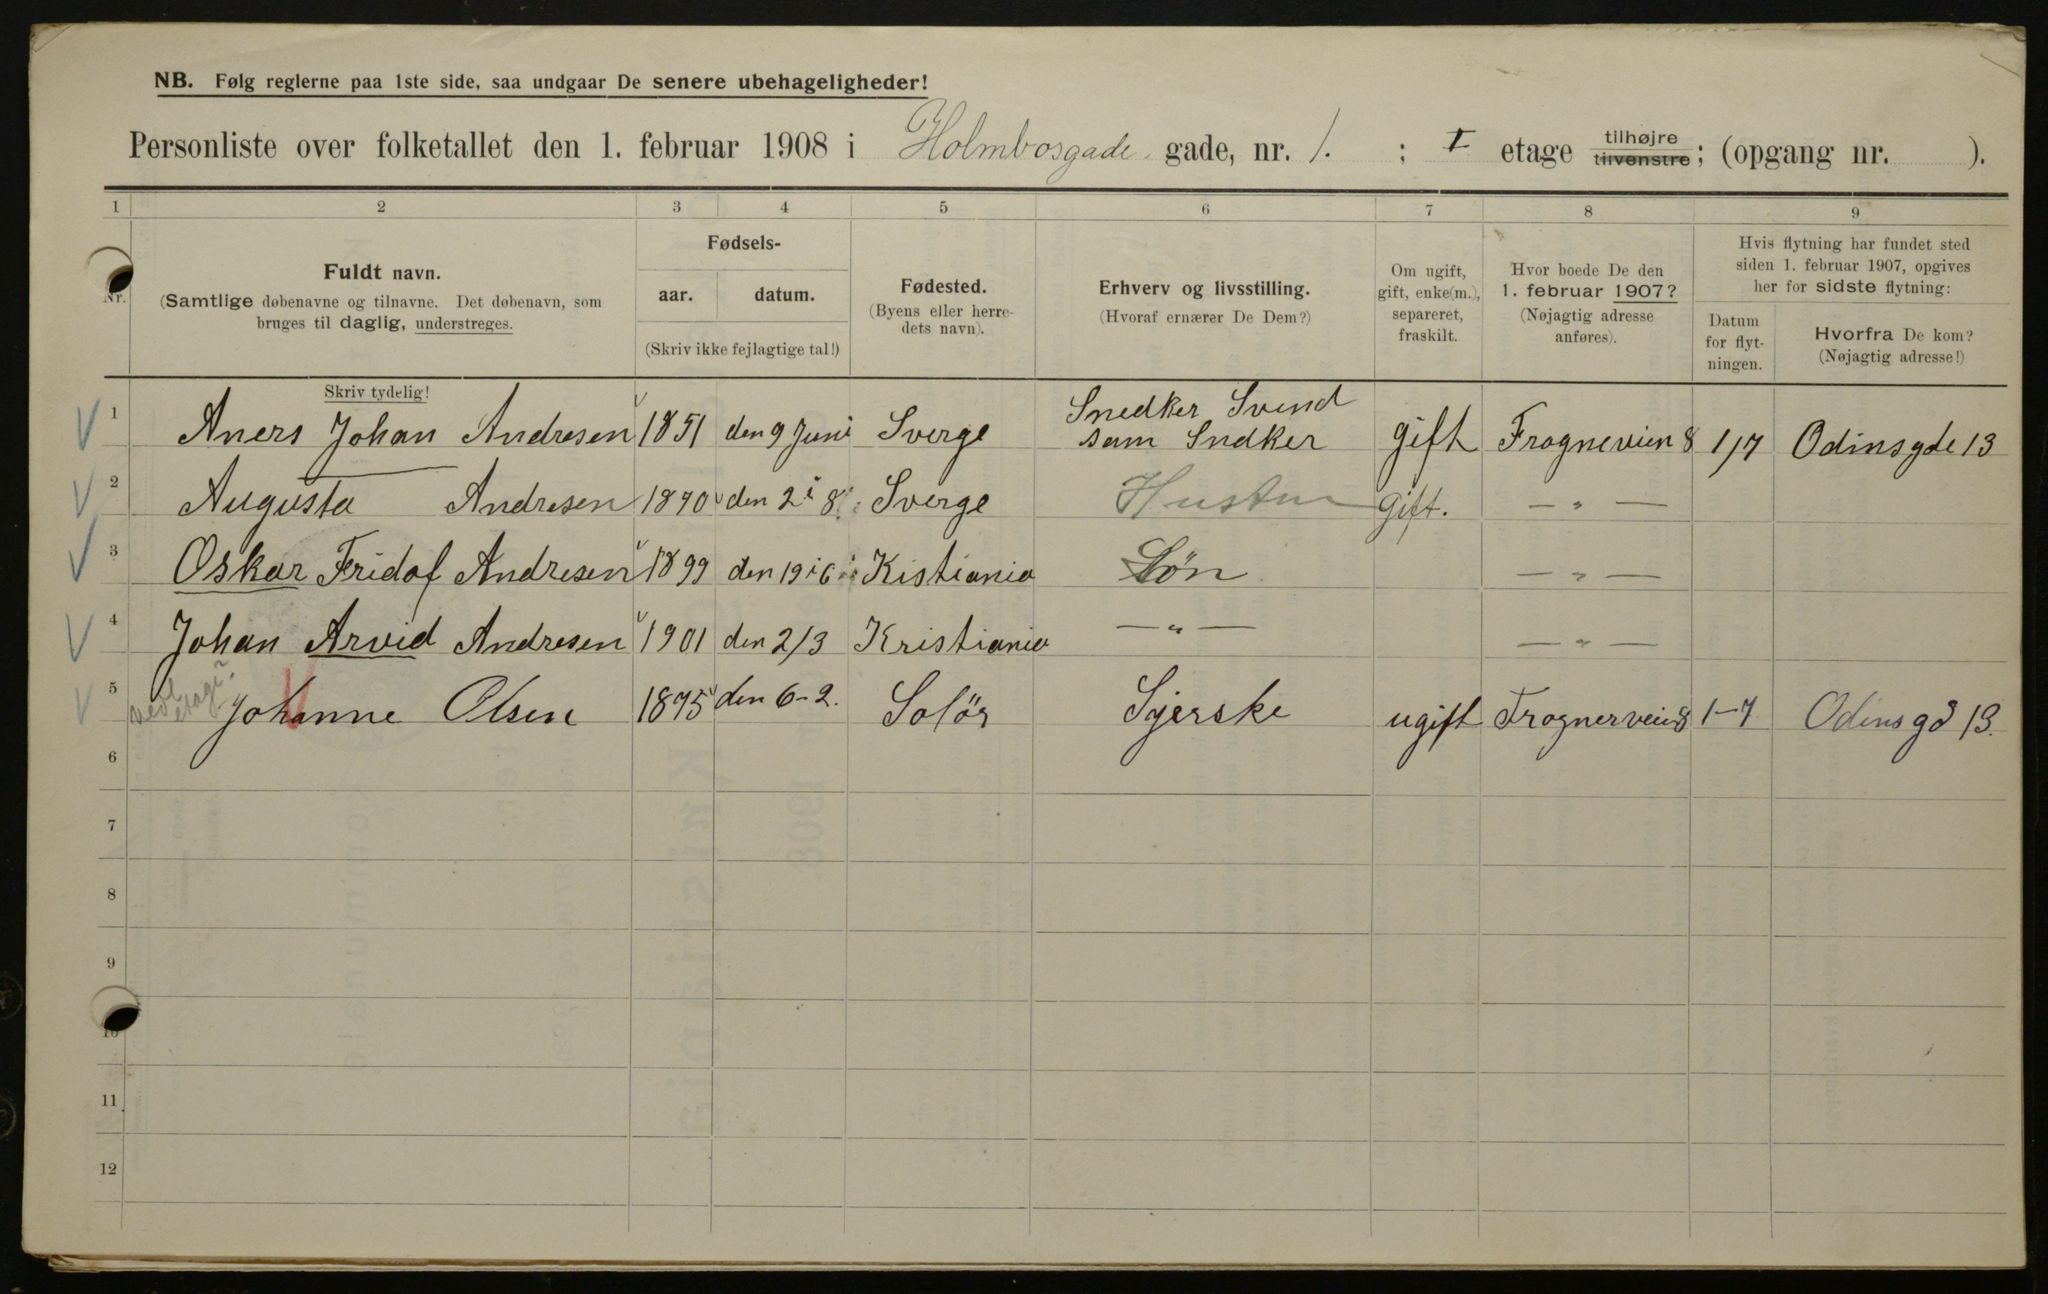 NB. Følg reglerne paa 1ste side, saa undgaar De senere ubehageligheder!
Personliste over folketallet den 1. februar 1908 i Holmbosgade gade, nr. 1. ; I etage tilhøjre tilvenstre; (opgang nr. ).
1 2 3 4 5 6 7 8 9
Nr. Fuldt navn. (Samtlige døbenavne og tilnavne. Det døbenavn, som bruges til daglig, understreges.
Fødsels- aar. datum. (Skriv ikke fejlagtige tal!)
Fødested. (Byens eller herredets navn).
Erhverv og livsstilling. (Hvoraf ernærer De Dem?)
Om ugift, gift, enke(m.), separeret, fraskilt.
Hvor boede De den 1. februar 1907? (Nøjagtig adresse anføres).
Hvis flytning har fundet sted siden 1. februar 1907, opgives her for sidste flytning:
Datum for flytningen. Hvorfra De kom? (Nøjagtig adresse!)
Skriv tydelig!
1 Aners Johan Andresen 1851 den 9 Juni Sverge Snedker Svend som Sndker gift Frognevien 8 1/7 Odinsgde 13
2 Augusta Andresen 1870 den 2 i 8 Sverge Hustru gift. — " —
3 Oskar Fridof Andresen 1899 den 19 i 6 Kistiania Søn — " —
4 Johan Arvid Andresen 1901 den 2/3 Kristiania — " — — " —
5 Johanne Olsen 1875 den 6-2. Solör Syerske ugift Frognerveien 8 1-7 Odinsgd 13.
6
7
8
9
10
11
12